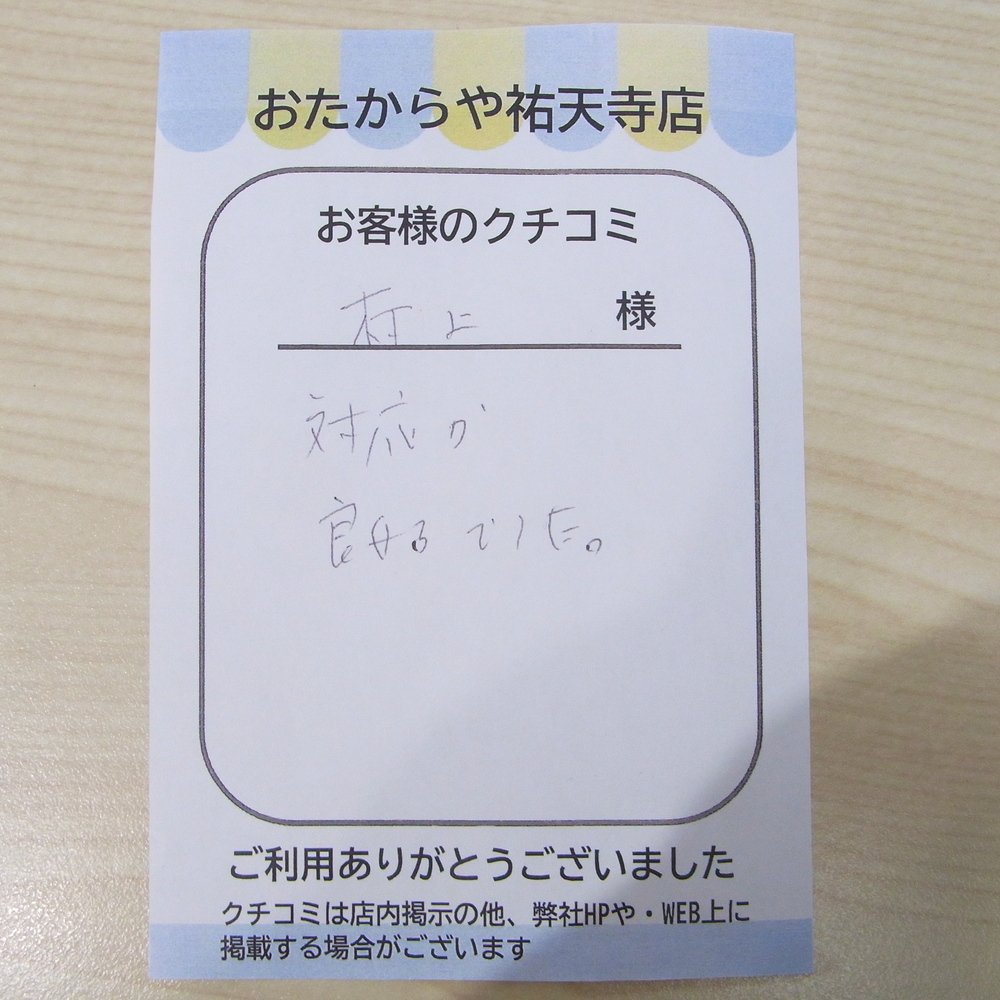 おたからや祐天寺店
お客様のクチコミ
村上 様
対応が
でした。
ご利用ありがとうございました
クチコミは店内掲示の他、弊社HPや・WEB上に
掲載する場合がございます